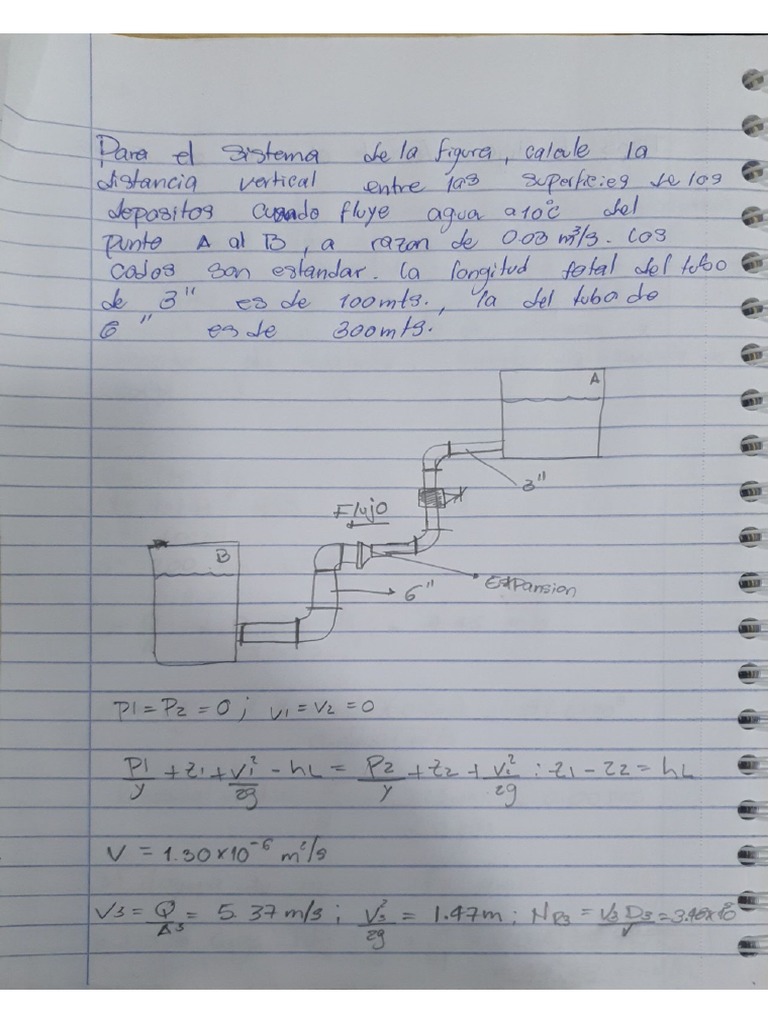 Para el sistema de la figura, calcule la
distancia vertical entre las superficies de los
depositos cuando fluye agua a 10°c del
punto A al B, a razon de 0.03 m³/s. Los
codos son estandar. La longitud total del tubo
de 3" es de 100mts., la del tubo de
6" es de 300mts.
A
3"
Flujo
B
Expansion
6"
P1 = P2 = 0 ; v1 = v2 = 0
P1/γ + z1 + v1²/2g - hL = P2/γ + z2 + v2²/2g : z1 - z2 = hL
V = 1.30 x 10⁻⁶ m²/s
V3 = Q/A3 = 5.37 m/s ; V3²/2g = 1.47 m ; NR3 = V3 D3/V =